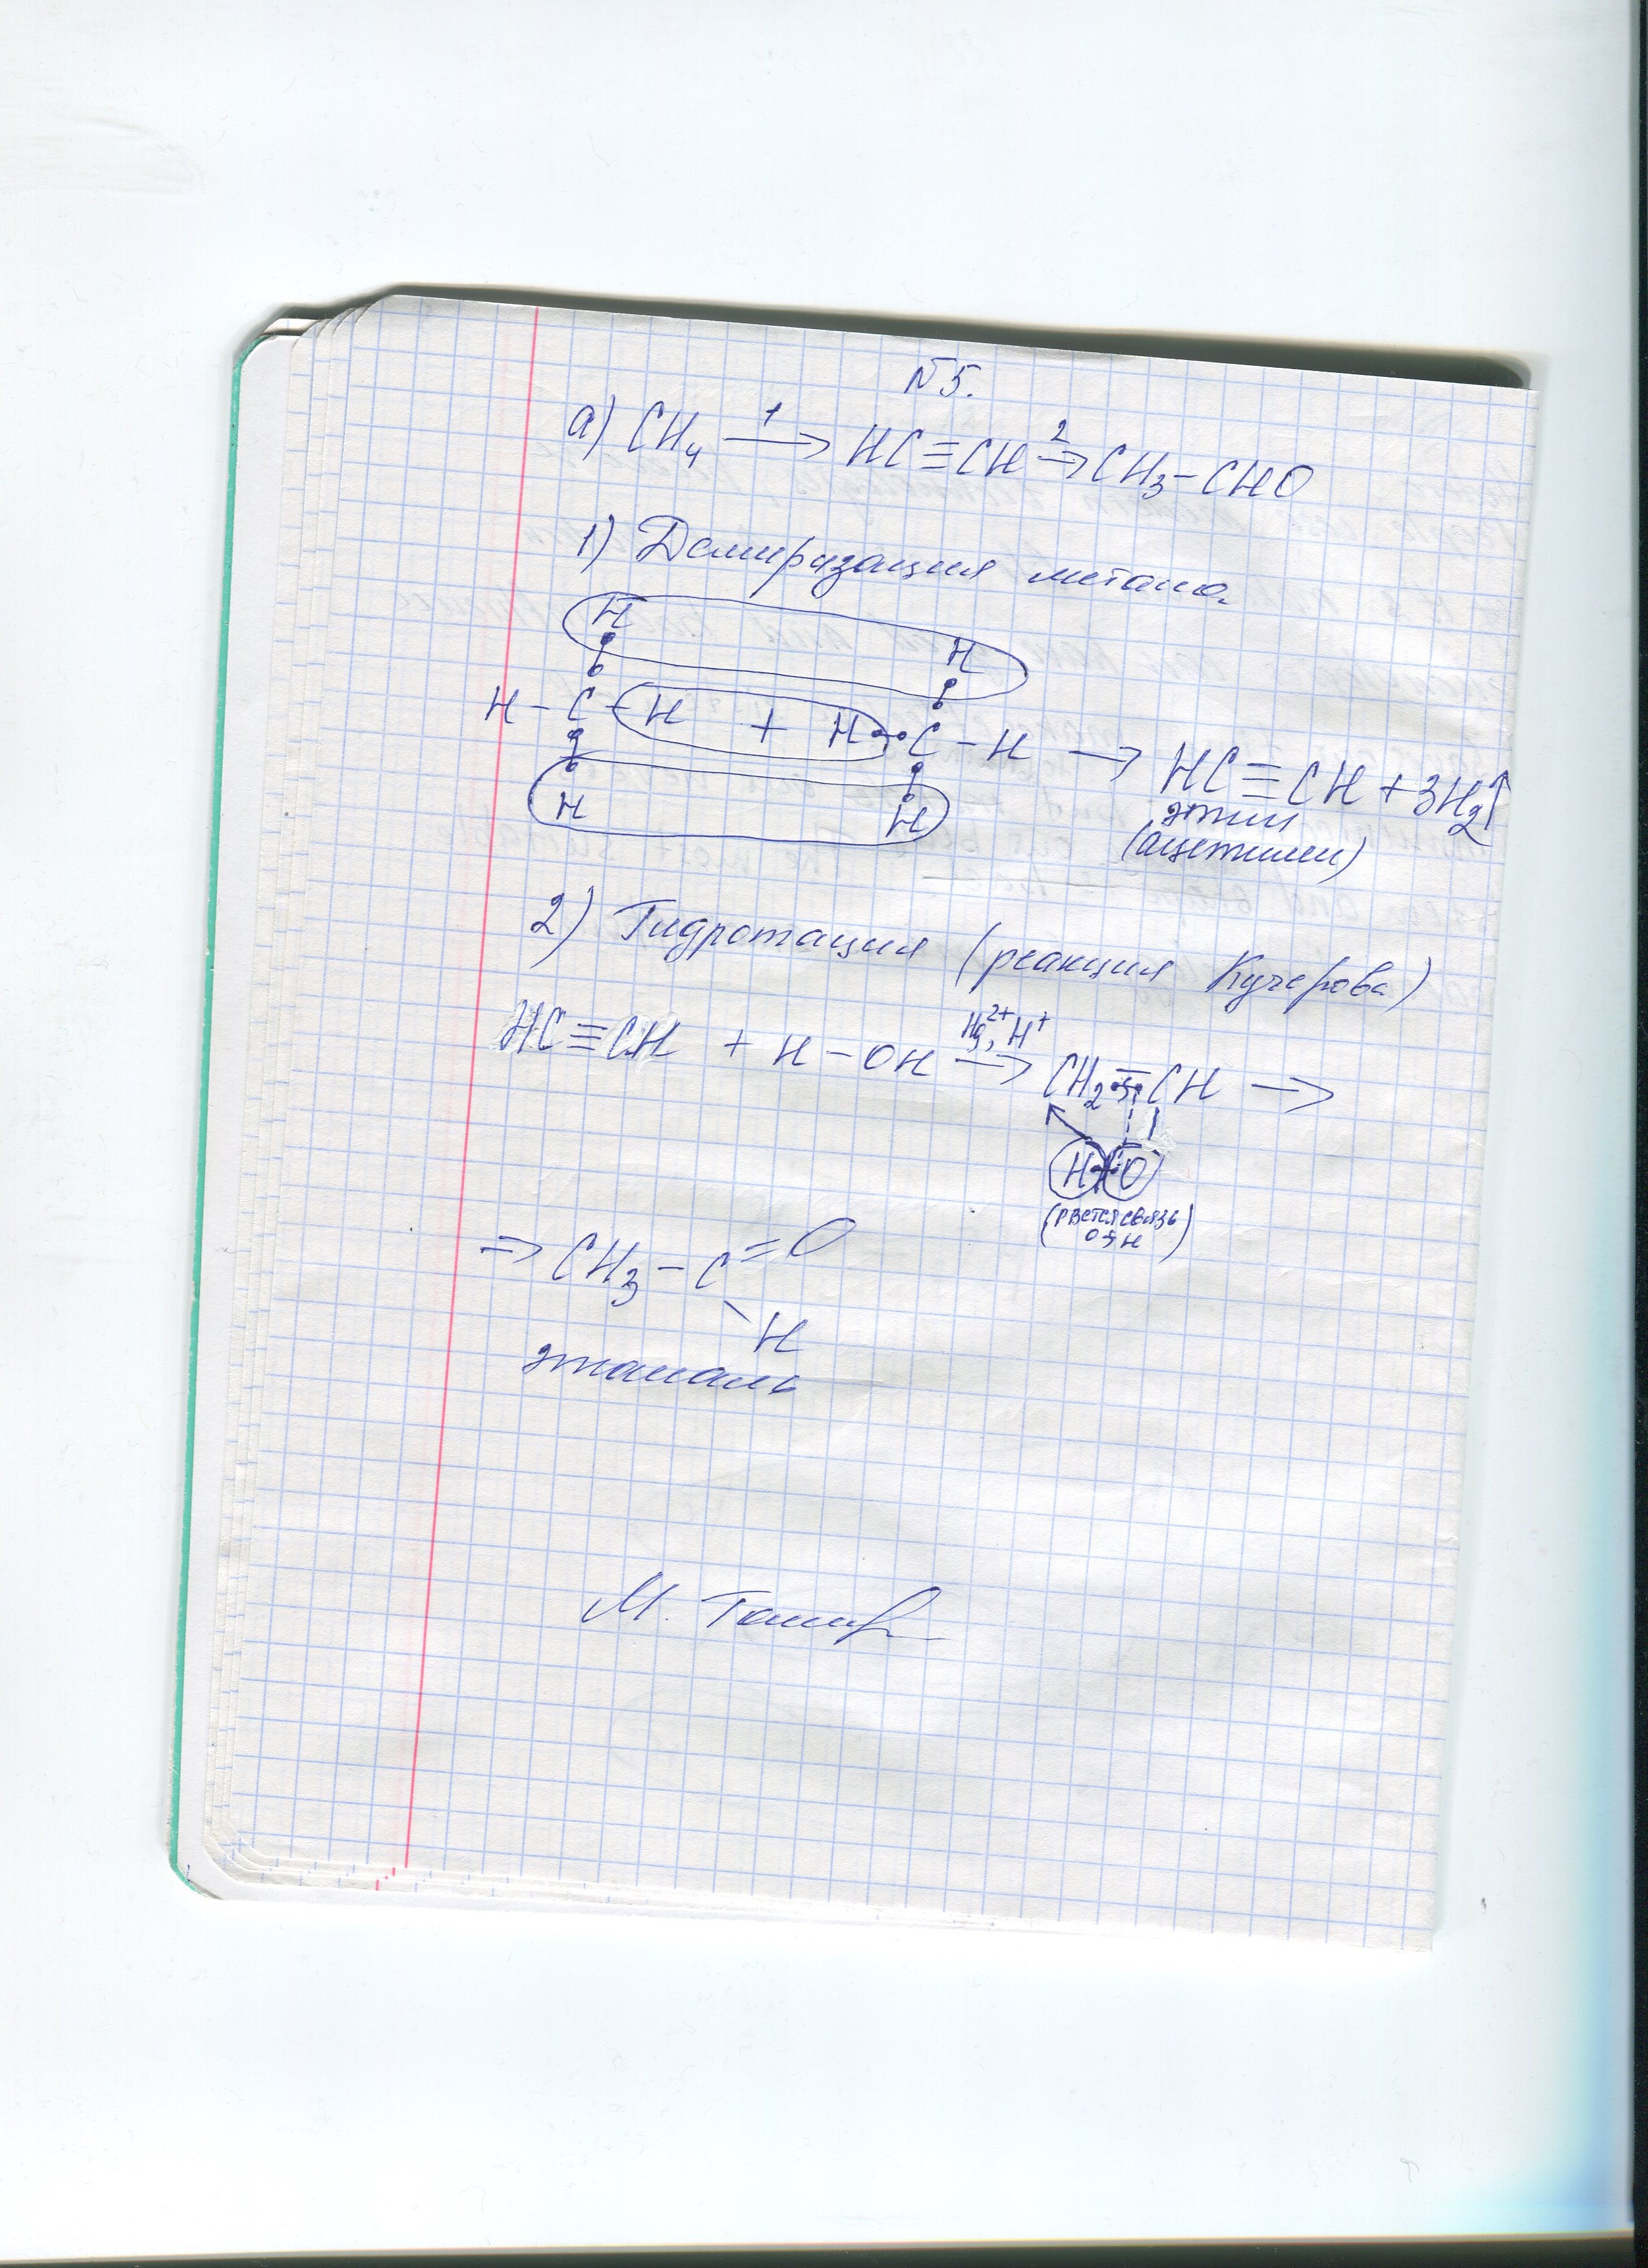 №5.
а) CH₄ —1→ HC≡CH —2→ CH₃–CHO
1) Демиризация метана
H H
H – C – H + H – C – H → HC≡CH + 3H₂↑
H H
этин
(ацетилен)
2) Гидротация (реакция Кучерова)
Hg²⁺, H⁺
HC≡CH + H – OH → CH₂ = CH →
H O
(рвется связь
O H)
→ CH₃ – C = O
H
этаналь
М.